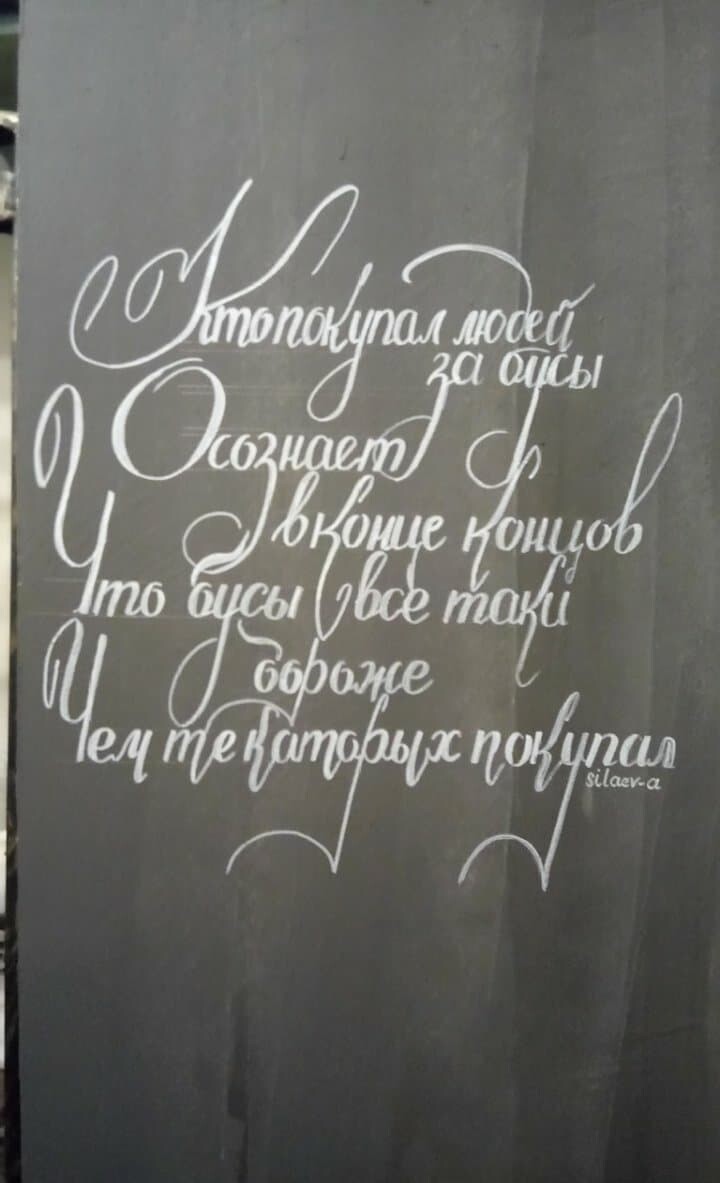 Кто покупал людей
за бусы
Осознает
в конце концов
Что бусы все таки
дороже
Чем те каторых покупал
silaev-a